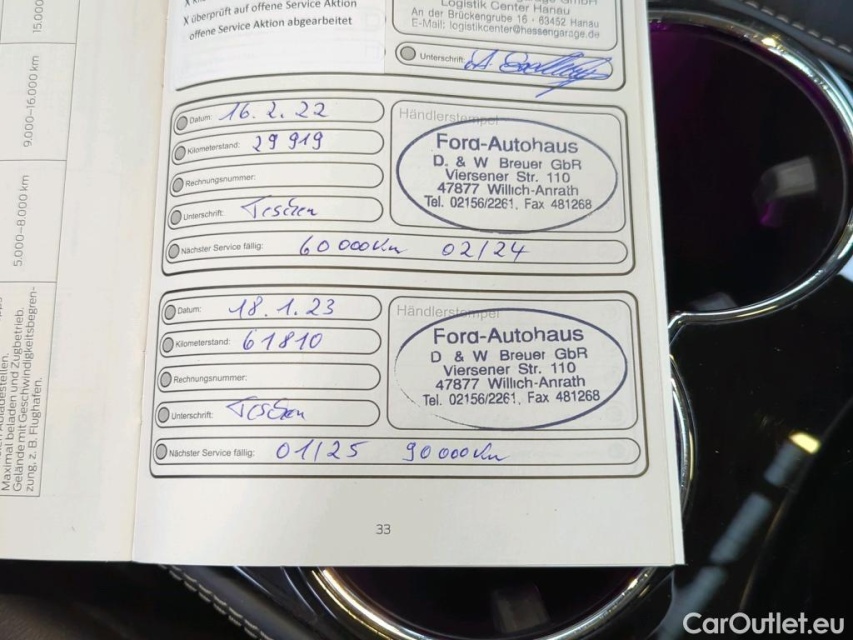 X überprüft auf offene Service Aktion
offene Service Aktion abgearbeitet
Logistik Center Hanau
An der Brückengrube 16 · 63452 Hanau
E-Mail: logistikcenter@hessengarage.de
Unterschrift:
Datum: 16.2.22
Kilometerstand: 29 919
Rechnungsnummer:
Unterschrift:
Nächster Service fällig: 60 000 km 02/24
Händlerstempel
Ford-Autohaus
D. & W Breuer GbR
Viersener Str. 110
47877 Willich-Anrath
Tel. 02156/2261, Fax 481268
Datum: 18.1.23
Kilometerstand: 61810
Rechnungsnummer:
Unterschrift:
Nächster Service fällig: 01/25 90 000 km
Händlerstempel
Ford-Autohaus
D & W Breuer GbR
Viersener Str. 110
47877 Willich-Anrath
Tel. 02156/2261, Fax 481268
33
15.000
9.000–16.000 km
5.000–8.000 km
Maximal beladen und Zugbetrieb.
Gelände mit Geschwindigkeitsbegren-
zung, z. B. Flughafen.
CarOutlet.eu